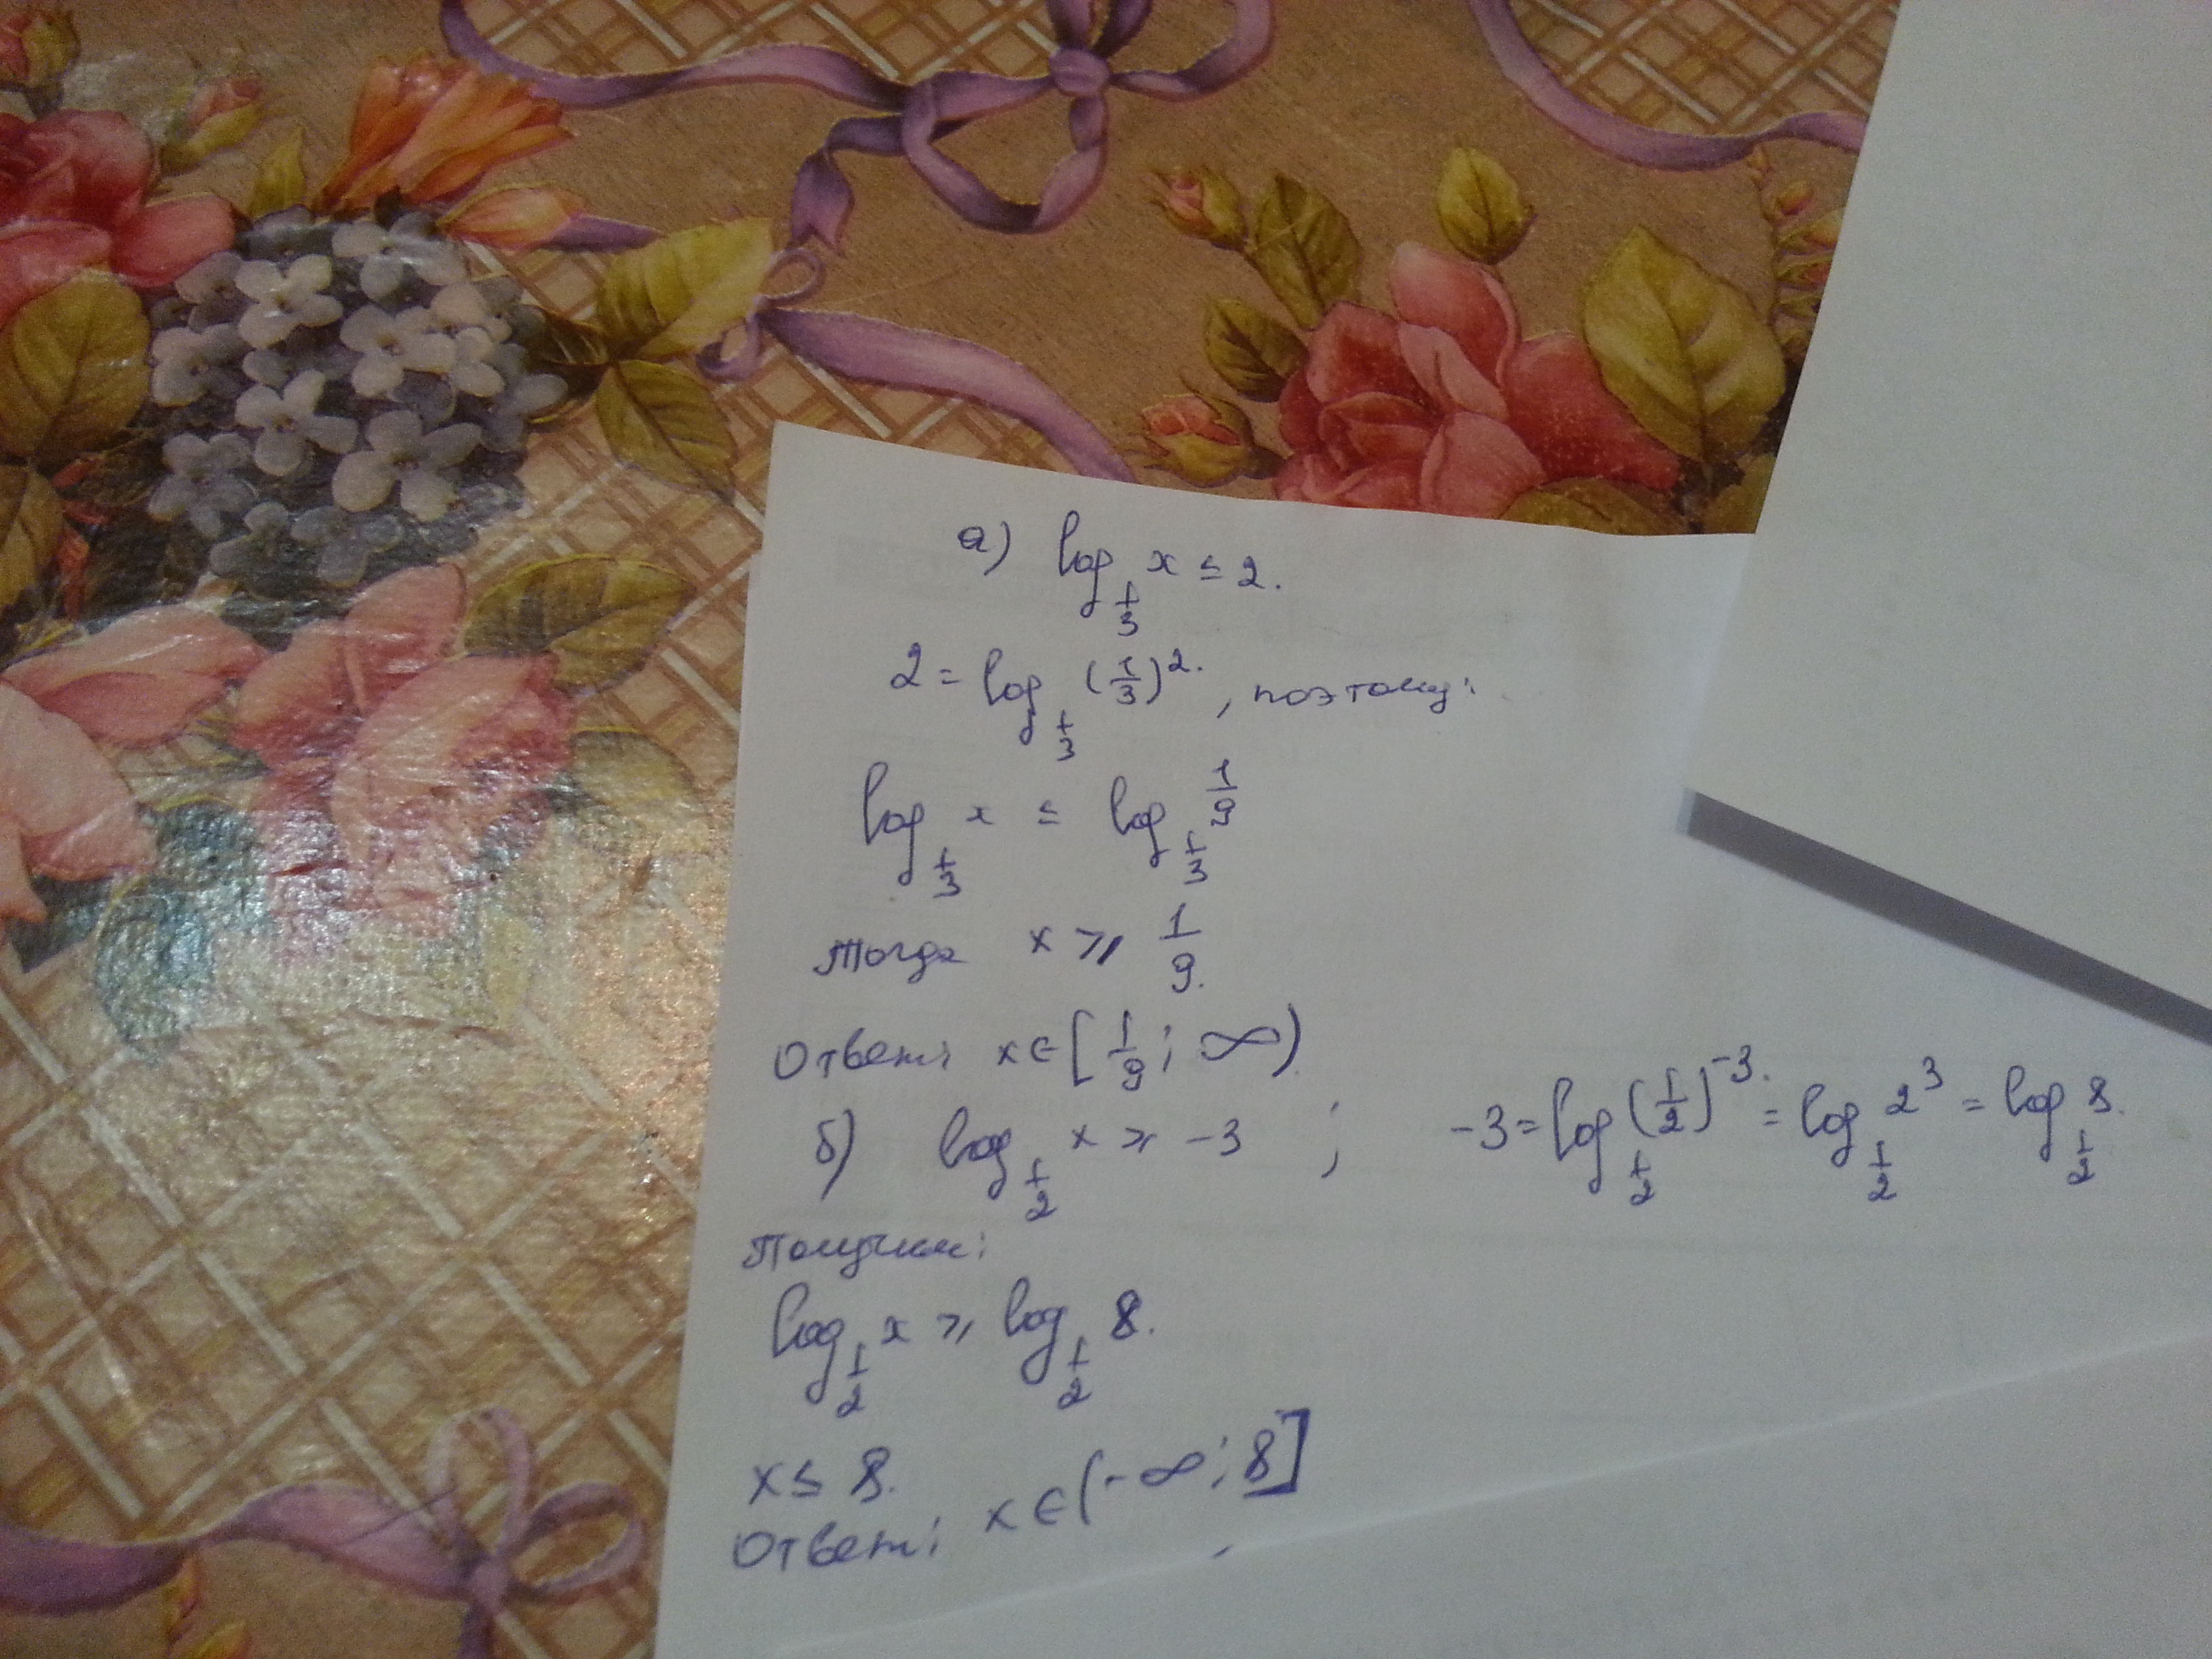 а) log_{1/3} x ≤ 2.
2 = log_{1/3} (1/3)^2. , поэтому:
log_{1/3} x ≤ log_{1/3} 1/9
Тогда x ⩾ 1/9.
Ответ: x ∈ [1/9; ∞)
б) log_{1/2} x ⩾ -3 ; -3 = log_{1/2} (1/2)^{-3}. = log_{1/2} 2^3 = log_{1/2} 8.
Получим:
log_{1/2} x ⩾ log_{1/2} 8.
x ≤ 8.
Ответ: x ∈ (-∞; 8]